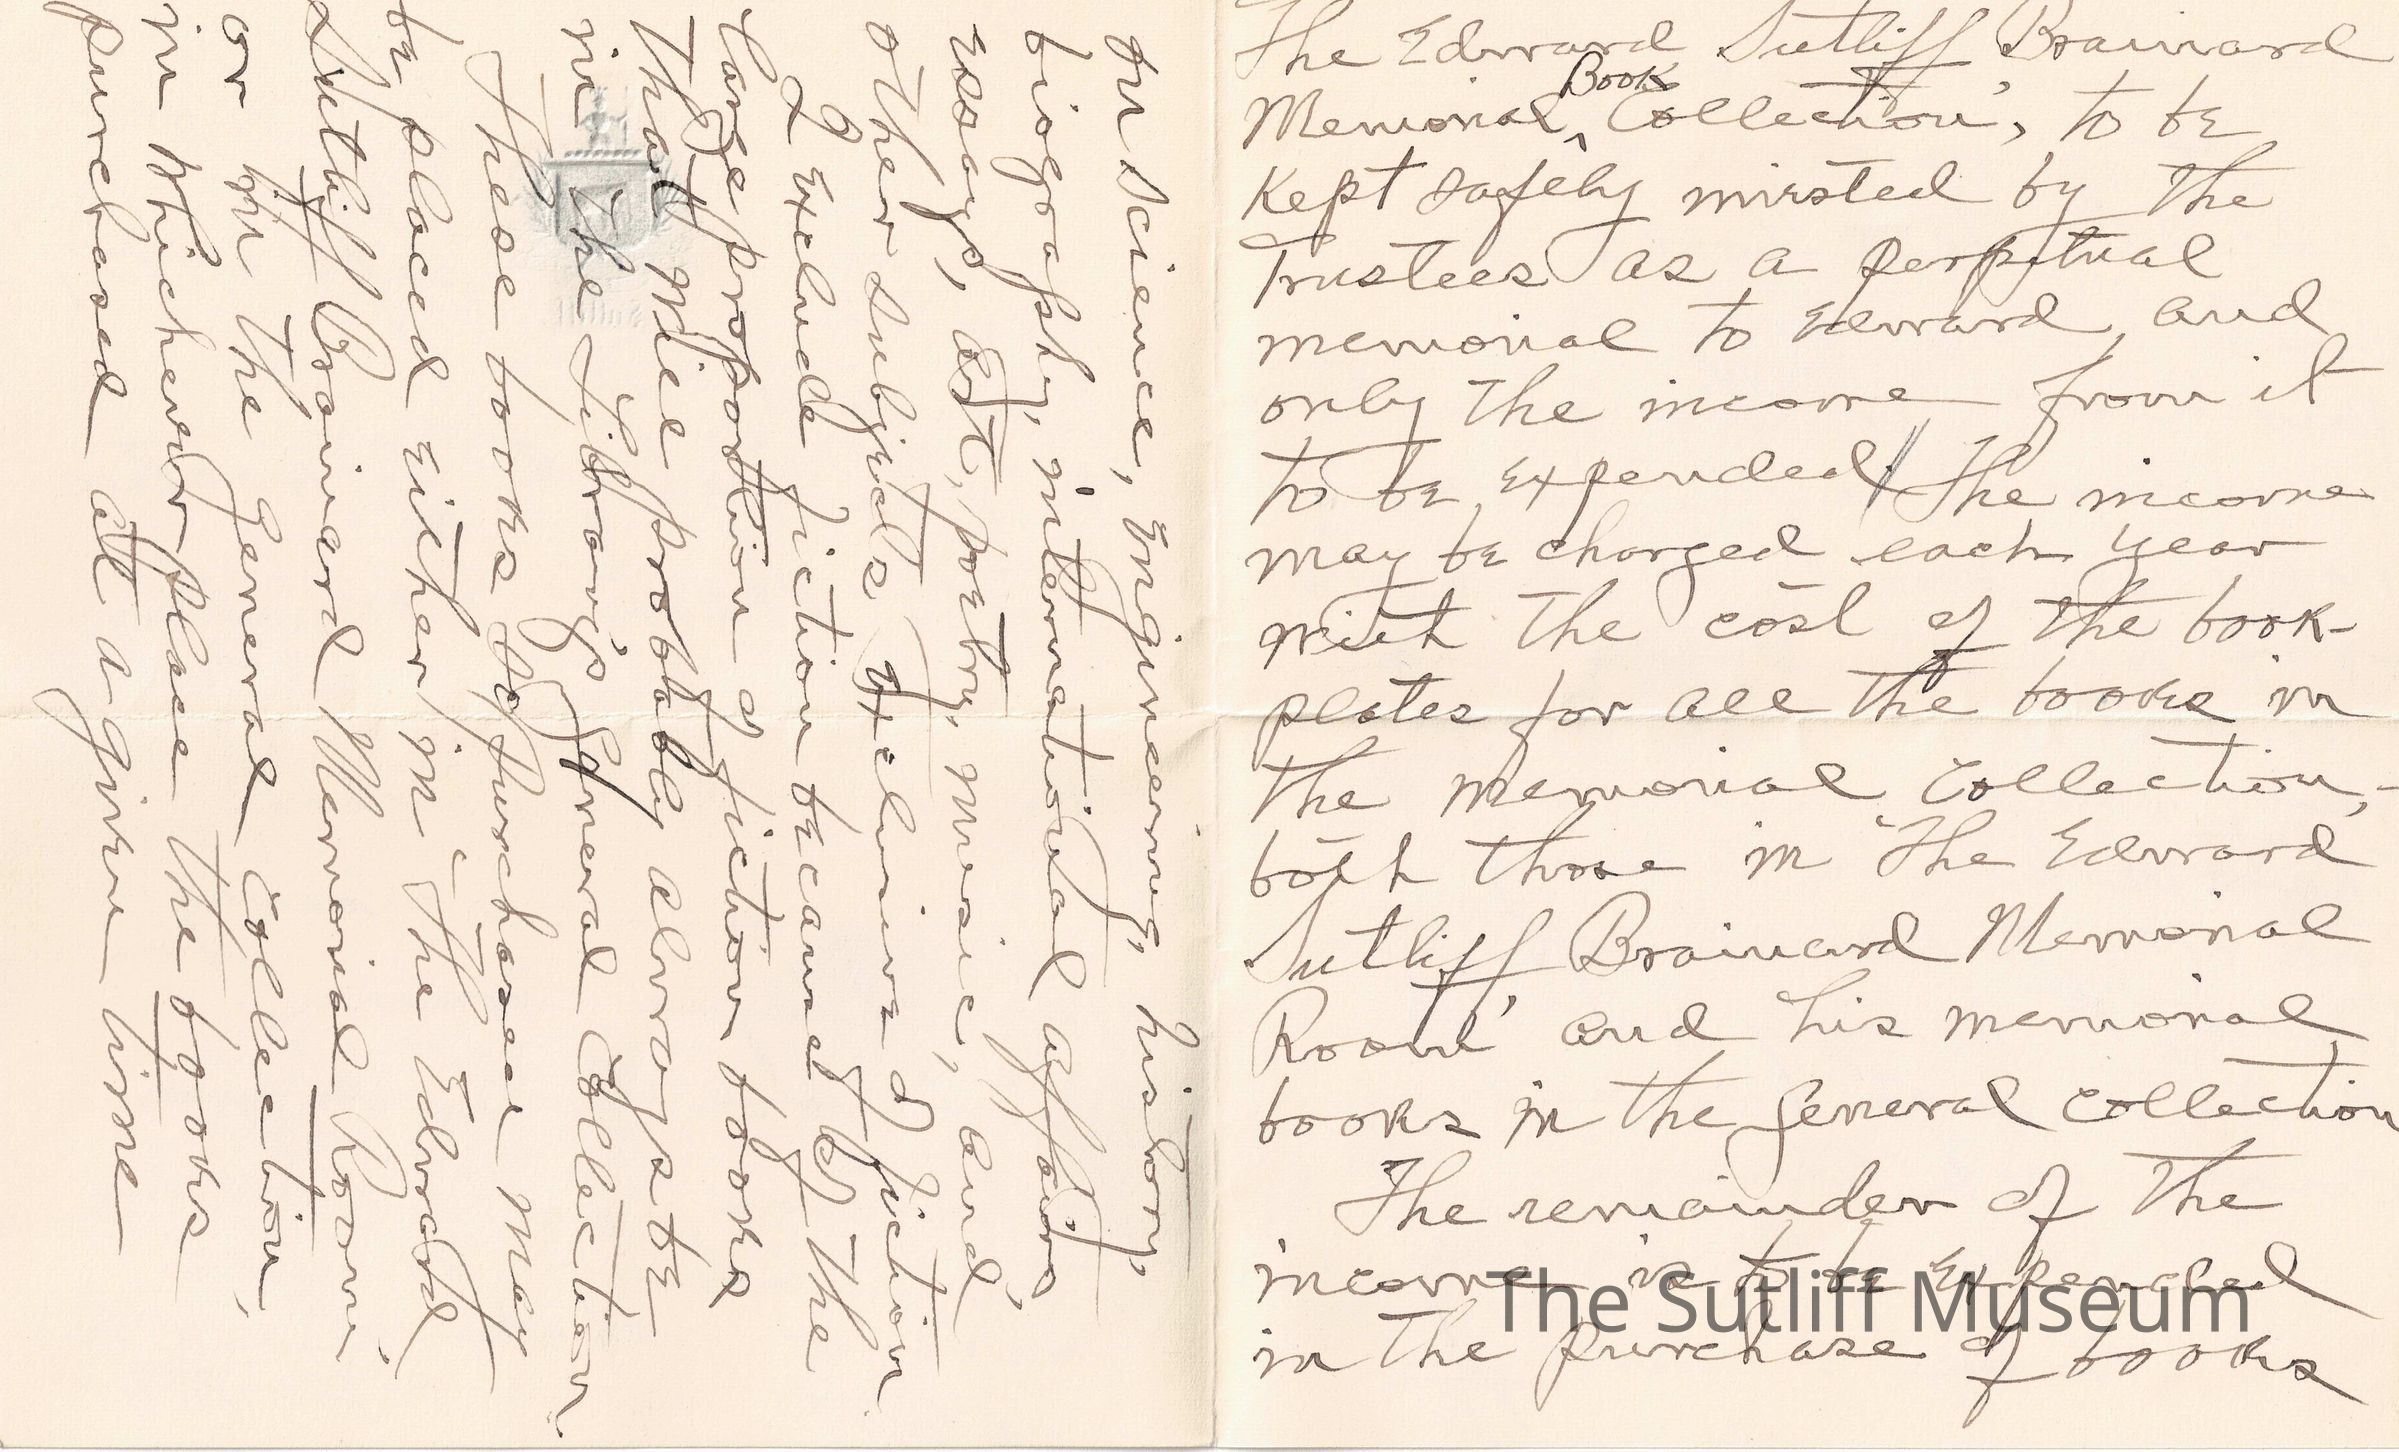 The Edward Sutliff Brainard
Memorial Book Collection', to be
kept safely invested by the
Trustees as a perpetual
memorial to Edward, and
only the income from it
to be expended. // The income
may be charged each year
with the cost of the book-
plates for all the books in
the memorial collection, -
both those in 'The Edward
Sutliff Brainard Memorial
Room' and his memorial
books in the general collection
The remainder of the
income is to be expended
in the purchase of books
on Science, Engineering, history,
biography, international affairs,
essays, art, poetry, music, and,
other subjects exclusive of fiction
I exclude fiction because of the
large proportion of fiction books
that will probably always be
in the Library's general collection.
These books so purchased may
be placed either in 'the Edward
Sutliff Brainard Memorial Room'
or in the general collection,
in whichever place the books
purchased at a given time
The Sutliff Museum